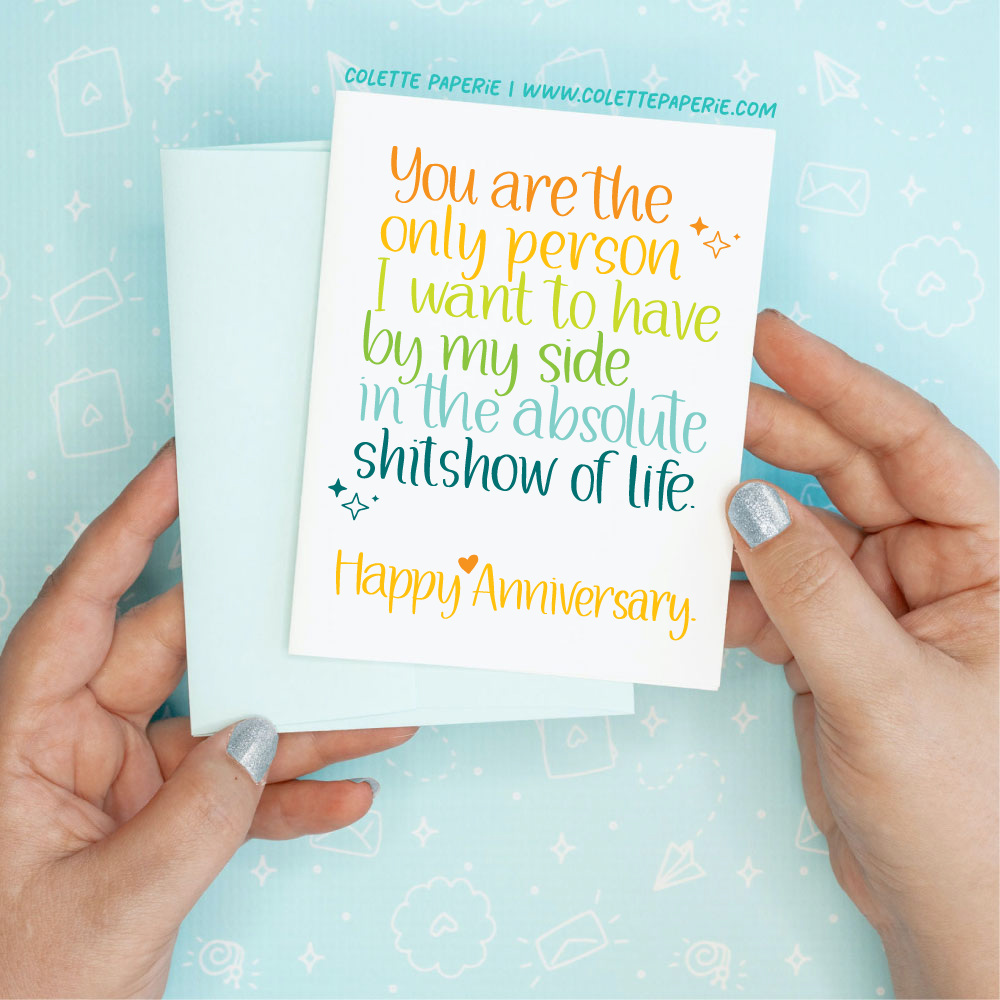 COLETTE PAPERIE | WWW.COLETTEPAPERIE.COM
You are the
only person
I want to have
by my side
in the absolute
shitshow of life.
Happy Anniversary.